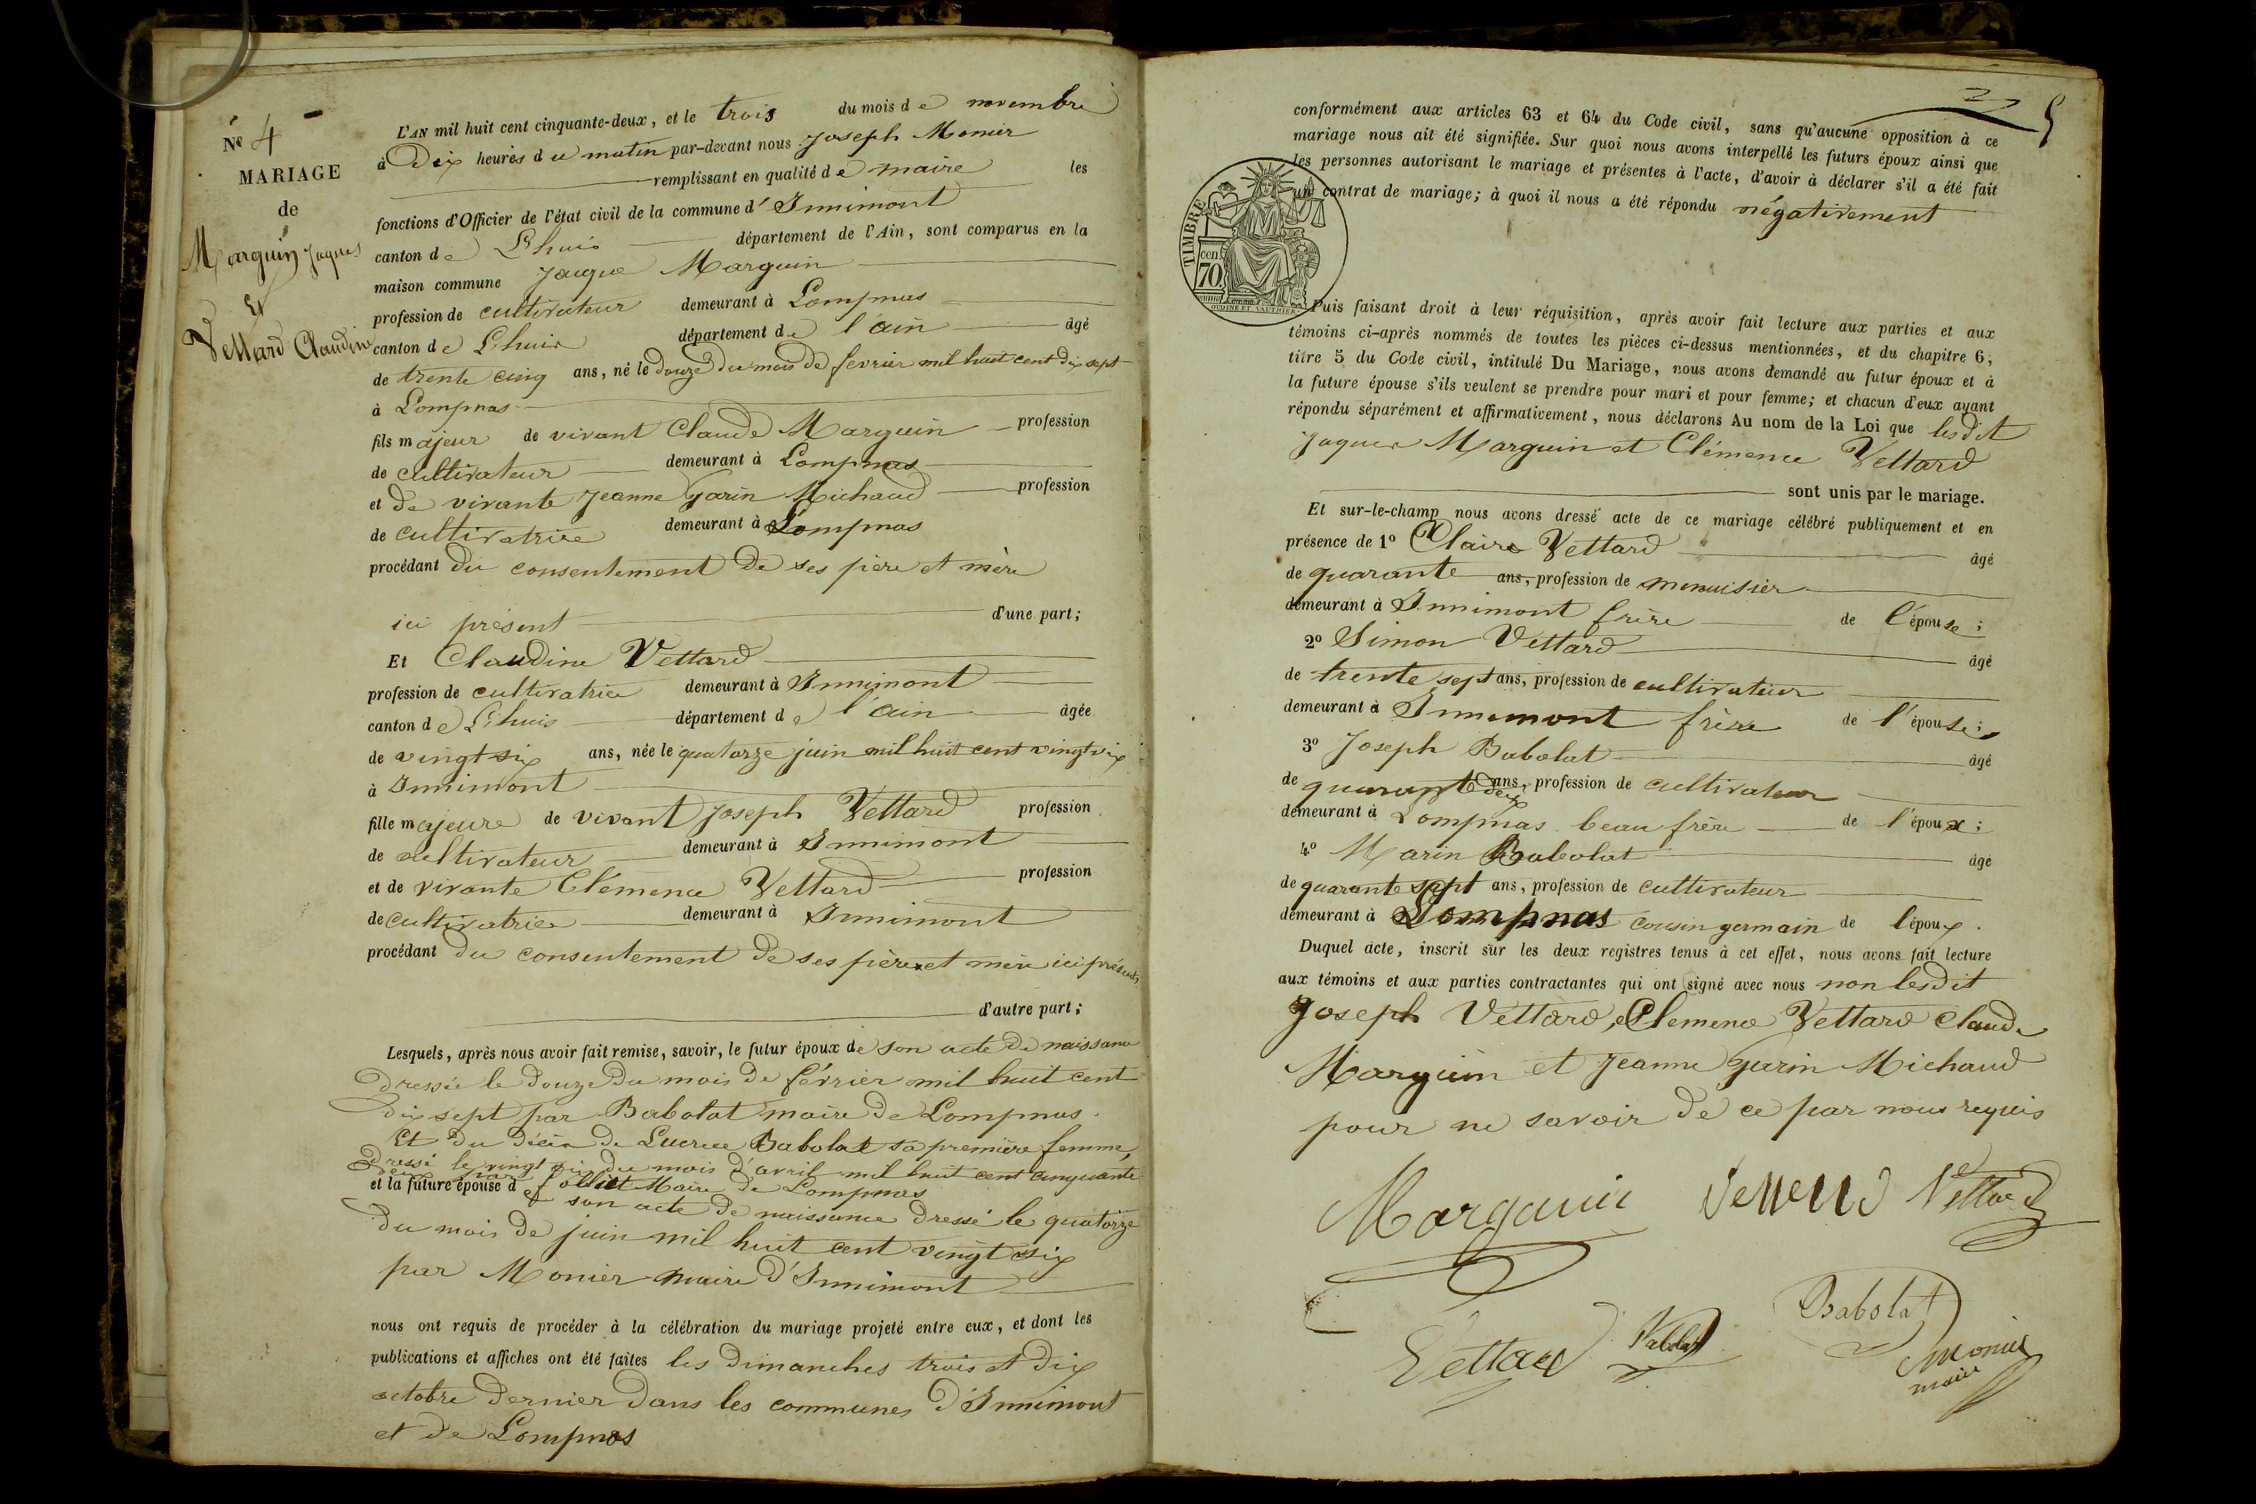 Nº 4
MARIAGE
de
Marguin Jaques
Et
Vettard Claudine
L'AN mil huit cent cinquante-deux, et le trois du mois de novembre
à Dix heures du matin par-devant nous Joseph Monier
remplissant en qualité de maire les
fonctions d'Officier de l'état civil de la commune d' Innimont
canton de Lhuis département de l'Ain, sont comparus en la
maison commune Jaque Marguin
profession de cultivateur demeurant à Lompnas
canton de Lhuis département de l'ain âgé
de trente cinq ans, né le douze du mois de fevrier mil huit cent dix sept
à Lompnas
fils majeur de vivant Claude Marguin profession
de cultivateur demeurant à Lompnas
et de vivante Jeanne Garin Michaud profession
de cultivatrice demeurant à Lompnas
procédant du consentement de ses père et mère
ici présent d'une part;
Et Claudine Vettard
profession de cultivatrice demeurant à Innimont
canton de Lhuis département de l'ain âgée
de vingt six ans, née le quatorze juin mil huit cent vingt six
à Innimont
fille majeure de vivant Joseph Vettard profession
de cultivateur demeurant à Innimont
et de vivante Clémence Vettard profession
de cultivatrice demeurant à Innimont
procédant du consentement de ses père et mère ici présents
d'autre part;
Lesquels, après nous avoir fait remise, savoir, le futur époux de son acte de naissance
dressée le douze du mois de février mil huit cent
dix sept par Babolat maire de Lompnas.
Et du décès de Lucrece Babolat sa première femme,
dressé le vingt du mois d'avril mil huit cent cinquante
deux par Folliet Maire de Lompnas
et la future épouse d e son acte de naissance dressé le quatorze
du mois de juin mil huit cent vingt six
par Monier maire d'Innimont
nous ont requis de procéder à la célébration du mariage projeté entre eux, et dont les
publications et affiches ont été faites les dimanches trois et dix
octobre dernier dans les communes d'Innimont
et de Lompnas
5
conformément aux articles 63 et 64 du Code civil, sans qu'aucune opposition à ce
mariage nous ait été signifiée. Sur quoi nous avons interpellé les futurs époux ainsi que
les personnes autorisant le mariage et présentes à l'acte, d'avoir à déclarer s'il a été fait
un contrat de mariage; à quoi il nous a été répondu négativement
TIMBRE
70 cen.
Puis faisant droit à leur réquisition, après avoir fait lecture aux parties et aux
témoins ci-après nommés de toutes les pièces ci-dessus mentionnées, et du chapitre 6,
titre 5 du Code civil, intitulé Du Mariage, nous avons demandé au futur époux et à
la future épouse s'ils veulent se prendre pour mari et pour femme; et chacun d'eux ayant
répondu séparément et affirmativement, nous déclarons Au nom de la Loi que lesdit
Jaques Marguin et Clémence Vettard
sont unis par le mariage.
Et sur-le-champ nous avons dressé acte de ce mariage célébré publiquement et en
présence de 1º Claire Vettard âgé
de quarante ans, profession de menuisier
demeurant à Innimont frère de l'épouse;
2º Simon Vettard âgé
de trente sept ans, profession de cultivateur
demeurant à Innimont frère de l'épouse;
3º Joseph Babolat âgé
de quarante deux ans, profession de cultivateur
demeurant à Lompnas beau frère de l'époux;
4º Marin Babolat âgé
de quarante sept ans, profession de cultivateur
demeurant à Lompnas cousin germain de l'époux.
Duquel acte, inscrit sur les deux registres tenus à cet effet, nous avons fait lecture
aux témoins et aux parties contractantes qui ont signé avec nous non lesdit
Joseph Vettard, Clemence Vettard Claude
Marguin et Jeanne Garin Michaud
pour ne savoir de ce par nous requis
Marguin Vettard Vettard
Vettard Babolat Babolat
Monier
maire